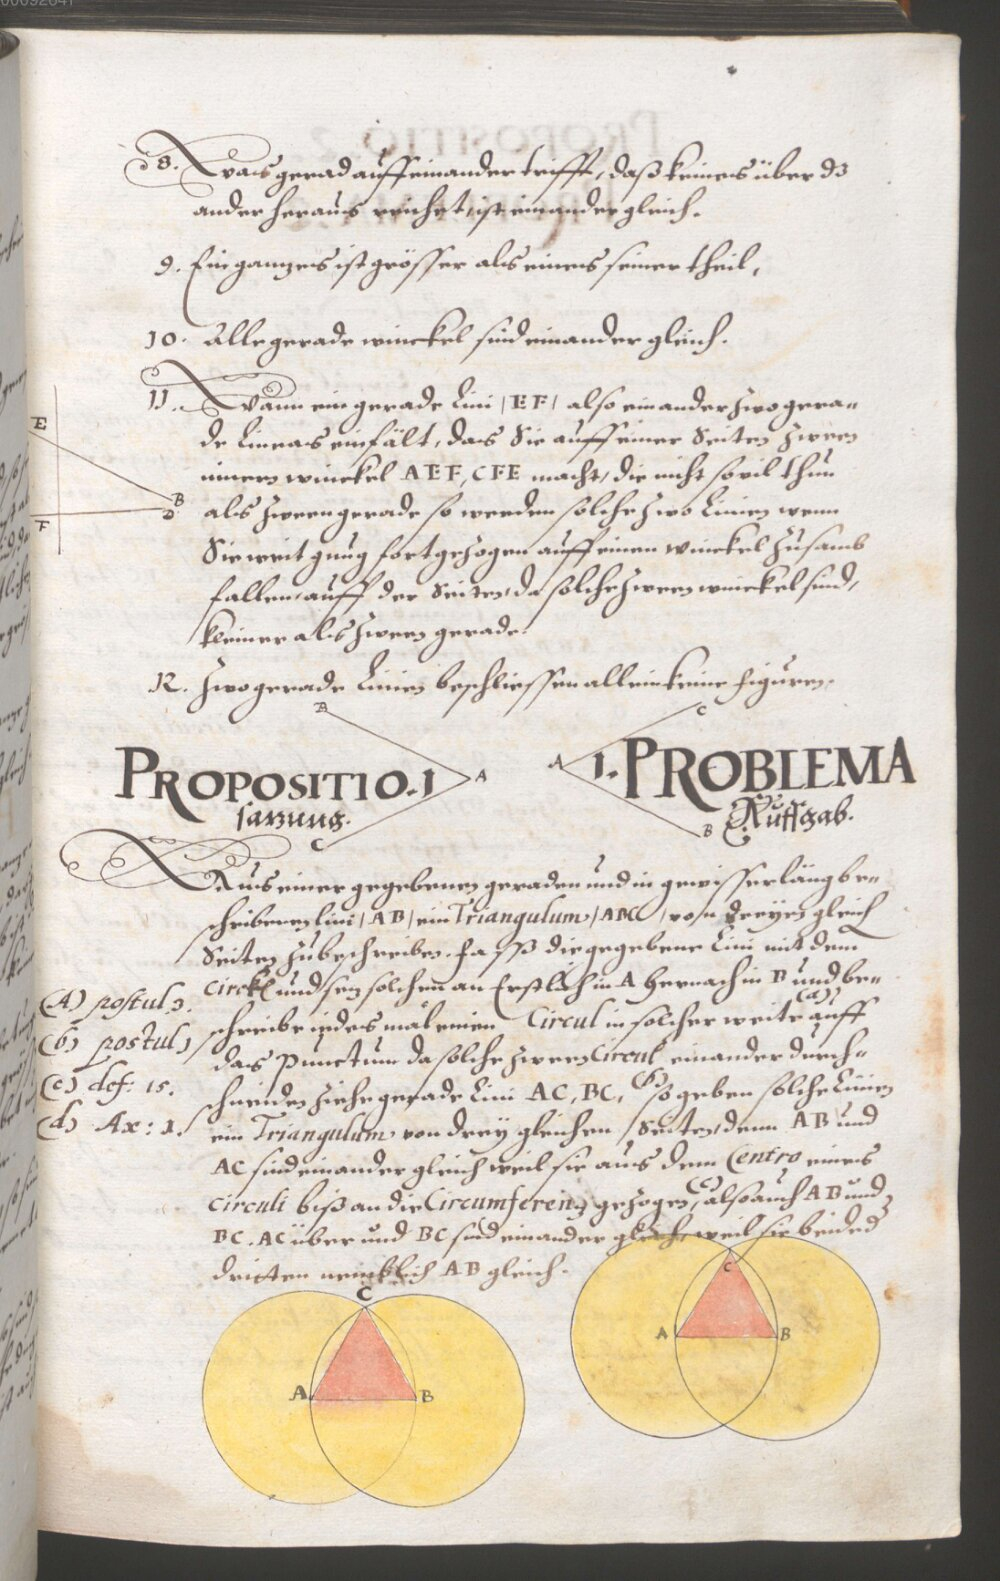 8. Was gerad auff einander trifft, daß keines über dz
ander heraus reichet, ist einander gleich.
9. Ein ganzes ist grösser als eines seiner theil,
10. Alle gerade winckel sind einander gleich.
11. Wann ein gerade Lini, EF, also ein ander zwo gera-
de Lineas einfält, das Sie auff einer Seiten zween
innern winckel AEF, CFE macht, die nicht sovil thun
als zween gerade so werden solche zwo Linien wenn
Sie weit gnug fortgezogen auff einen winckel zusamb
fallen, auff der Seiten, da solche zween winckel sind,
kleiner als zween gerade.
12. Zwo gerade Linien beschliessen allein keine figuren.
E
F
B
D
B
A
C
C
A
B
PROPOSITIO. I
sazung.
I. PROBLEMA
Auffgab.
Aus einer gegebenen geraden und in gewisser läng be-
schribenen lini, AB, ein Triangulum, ABC, von dreyen gleich
Seiten zubeschreiben. faß die gegebene Lini mit dem
Circkl und sez solchen an Erstlich in A hernach in B und be-
schreibe jedes mal einen Circul in solcher weite (a) auff
das Punctum da solche zween Circul einander durch-
schneiden ziehe gerade Lini AC, BC, (b) so geben solche Linien
ein Triangulum von drey gleichen Seiten, denn AB und
AC sind einander gleich weil sie aus dem Centro eines
Circuli biß an die Circumferenz gezogen, (c) also auch AB und
BC. AC über und BC sind einander gleich, weil sie beide d
dritten nemblich AB gleich.
(A) postul 3.
(b) postul 1
(c) def: 15.
(d) Ax: 1.
C
A
B
C
A
B